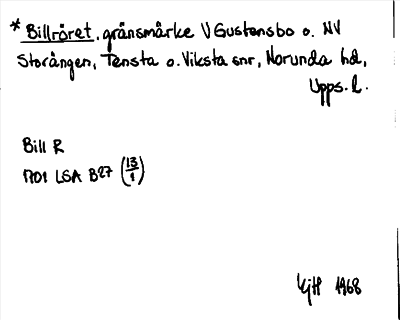 * Billröret, gränsmärke V Gustensbo o. NV
Storången, Tensta o. Viksta snr, Norunda hd,
Upps. l.
Bill R
1701 LSA B27 (13/1)
1968